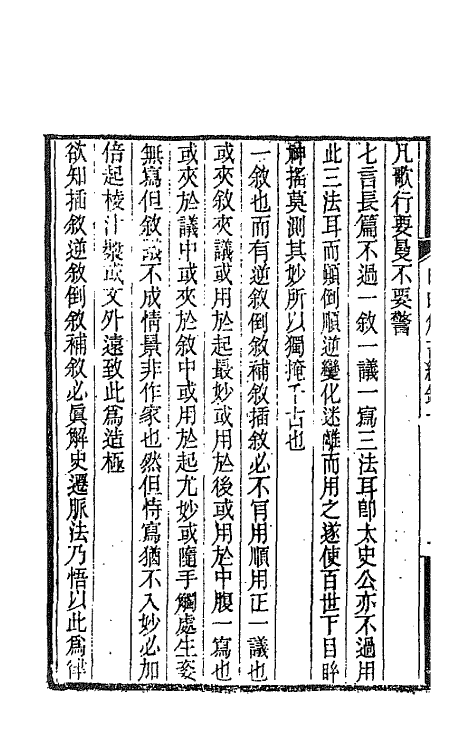 凡歌行要曼不要警
七言長篇不過一敘一議一寫三法耳卽太史公亦不過用
此三法耳而顚倒順逆變化迷離而用之遂使百世下目眩
神搖莫測其妙所以獨掩千古也
一敘也而有逆敘倒敘補敘插敘必不肯用順用正一議也
或夾敘夾議或用於起最妙或用於後或用於中腹一寫也
或夾於議中或夾於敘中或用於起尤妙或隨手觸處生姿
無寫但敘議不成情景非作家也然但恃寫猶不入妙必加
倍起棱汁漿或文外遠致此爲造極
欲知插敘逆敘倒敘補敘必眞解史遷脈法乃悟以此爲律